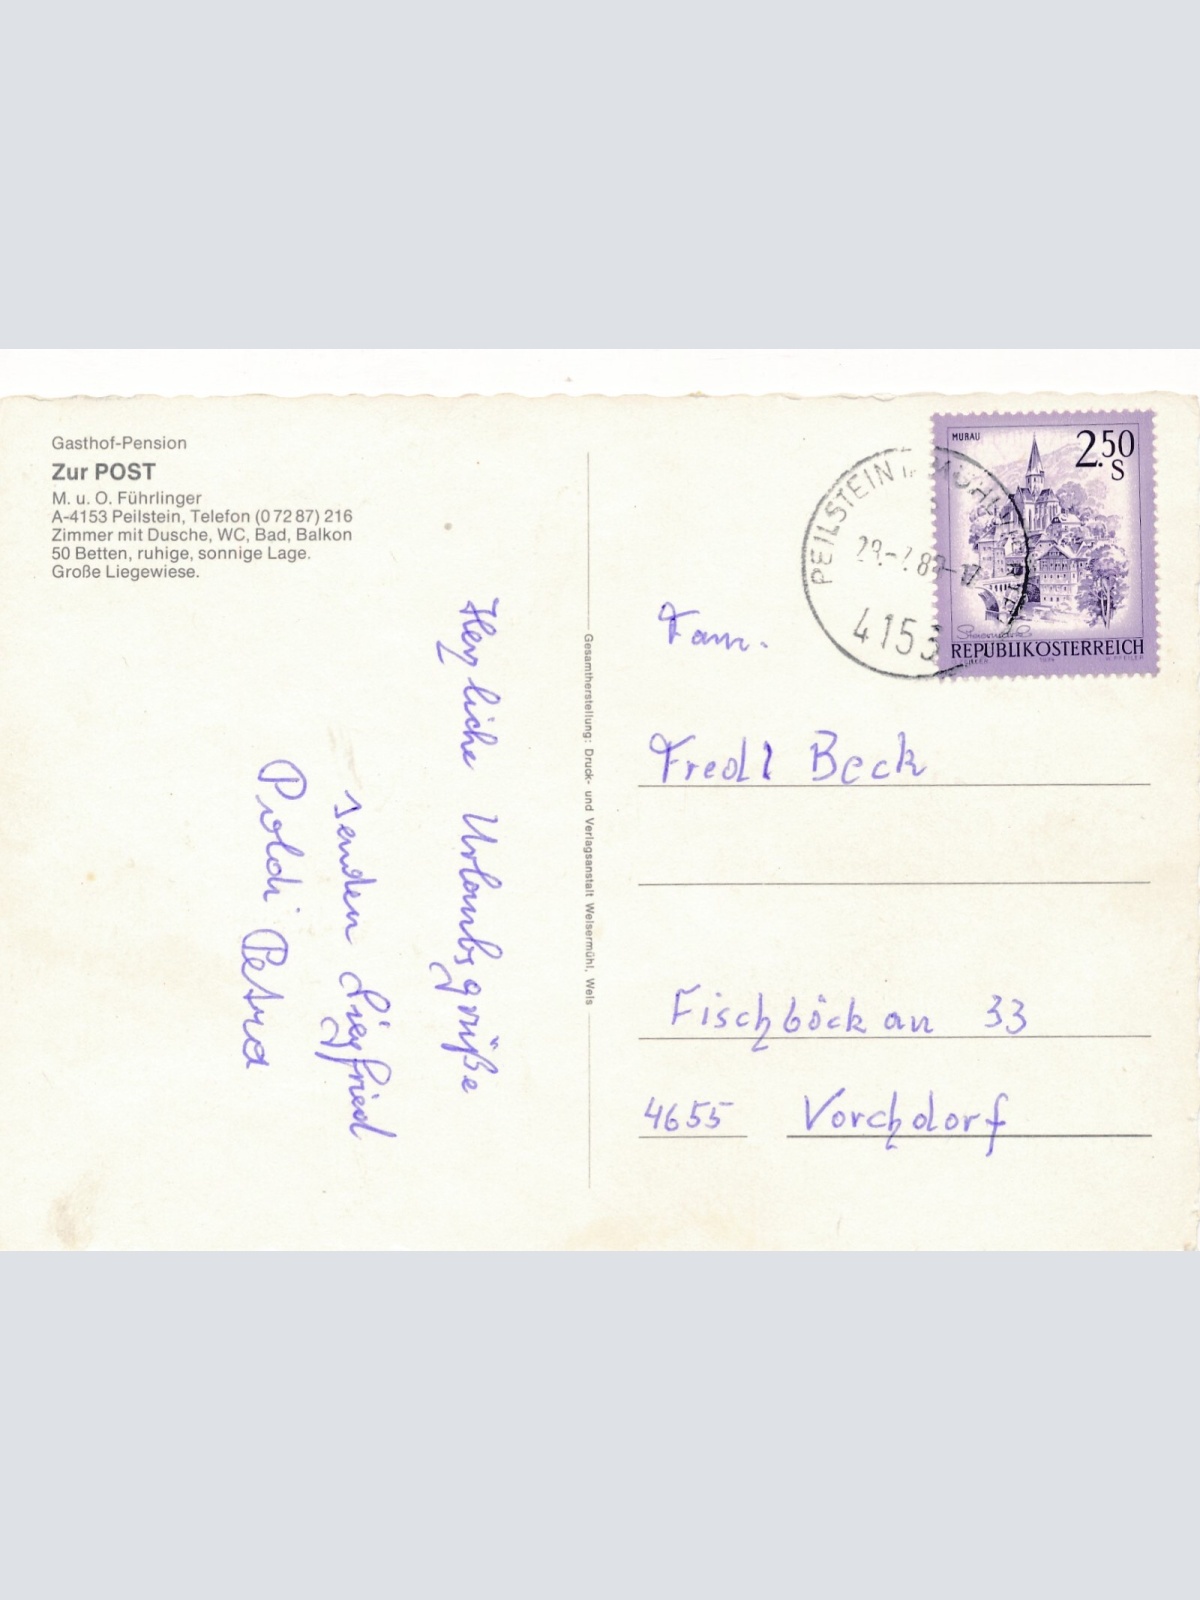 Gasthof-Pension
Zur POST
M. u. O. Führlinger
A-4153 Peilstein, Telefon (0 72 87) 216
Zimmer mit Dusche, WC, Bad, Balkon
50 Betten, ruhige, sonnige Lage.
Große Liegewiese.
Herzliche Urlaubsgrüße
senden Siegfried
Poldi Petra
Gesamtherstellung: Druck- und Verlagsanstalt Welsermühl, Wels
MURAU
2.50
S
Steiermark
REPUBLIK ÖSTERREICH
PEILSTEIN I. MÜHLVIERTEL
4153
Fam.
Fredl Beck
Fischböckau 33
4655 Vorchdorf